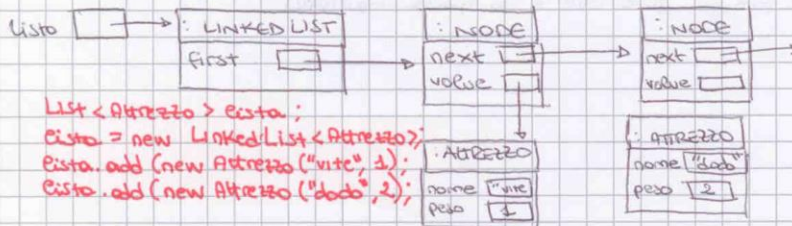 lista
: LINKED LIST
first
: NODE
next
value
: NODE
next
value
List <Attrezzo> lista;
lista = new LinkedList<Attrezzo>;
lista.add (new Attrezzo ("vite", 1);
lista.add (new Attrezzo ("dado", 2);
: ATTREZZO
nome "vite
peso 1
: ATTREZZO
nome "dado"
peso 2